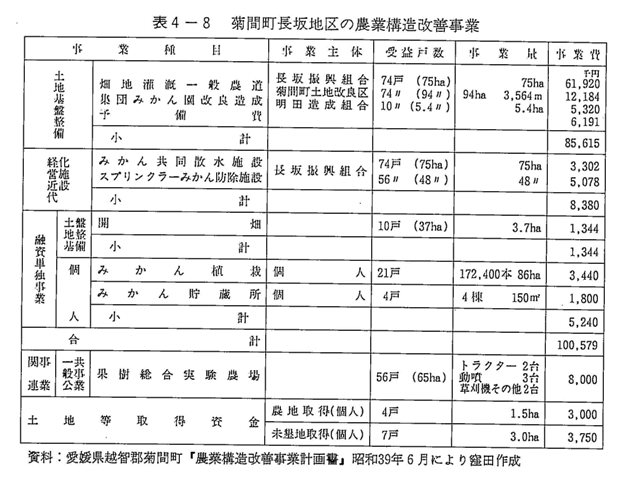 表4－8　菊間町長坂地区の農業構造改善事業
事業種目　事業主体　受益戸数　事業量　事業費
土地基盤整備　畑地灌漑一般農道　長坂振興組合　74戸（75ha）　75ha　千円 61,920
集団みかん園改良造成　菊間町土地改良区　74〃（94〃）　94ha　3,564m　12,184
明田造成組合　10〃（5.4〃）　5.4ha　5,320
予備費　6,191
小計　85,615
経営近代化施設　みかん共同散水施設　長坂振興組合　74戸（75ha）　75ha　3,302
スプリンクラーみかん防除施設　56〃（48〃）　48〃　5,078
小計　8,380
融資単独事業　土地基盤整備　開畑　10戸（37ha）　3.7ha　1,344
小計　1,344
個人　みかん植栽　個人　21戸　172,400本 86ha　3,440
みかん貯蔵所　個人　4戸　4棟　150㎡　1,800
小計　5,240
合計　100,579
関連事業　一般公共事業　果樹総合実験農場　56戸（65ha）　トラクター2台　8,000
動噴　3台
草刈機その他2台
土地等取得資金　農地取得(個人)　4戸　1.5ha　3,000
未墾地取得(個人)　7戸　3.0ha　3,750
資料：愛媛県越智郡菊間町『農業構造改善事業計画書』昭和39年6月により窪田作成